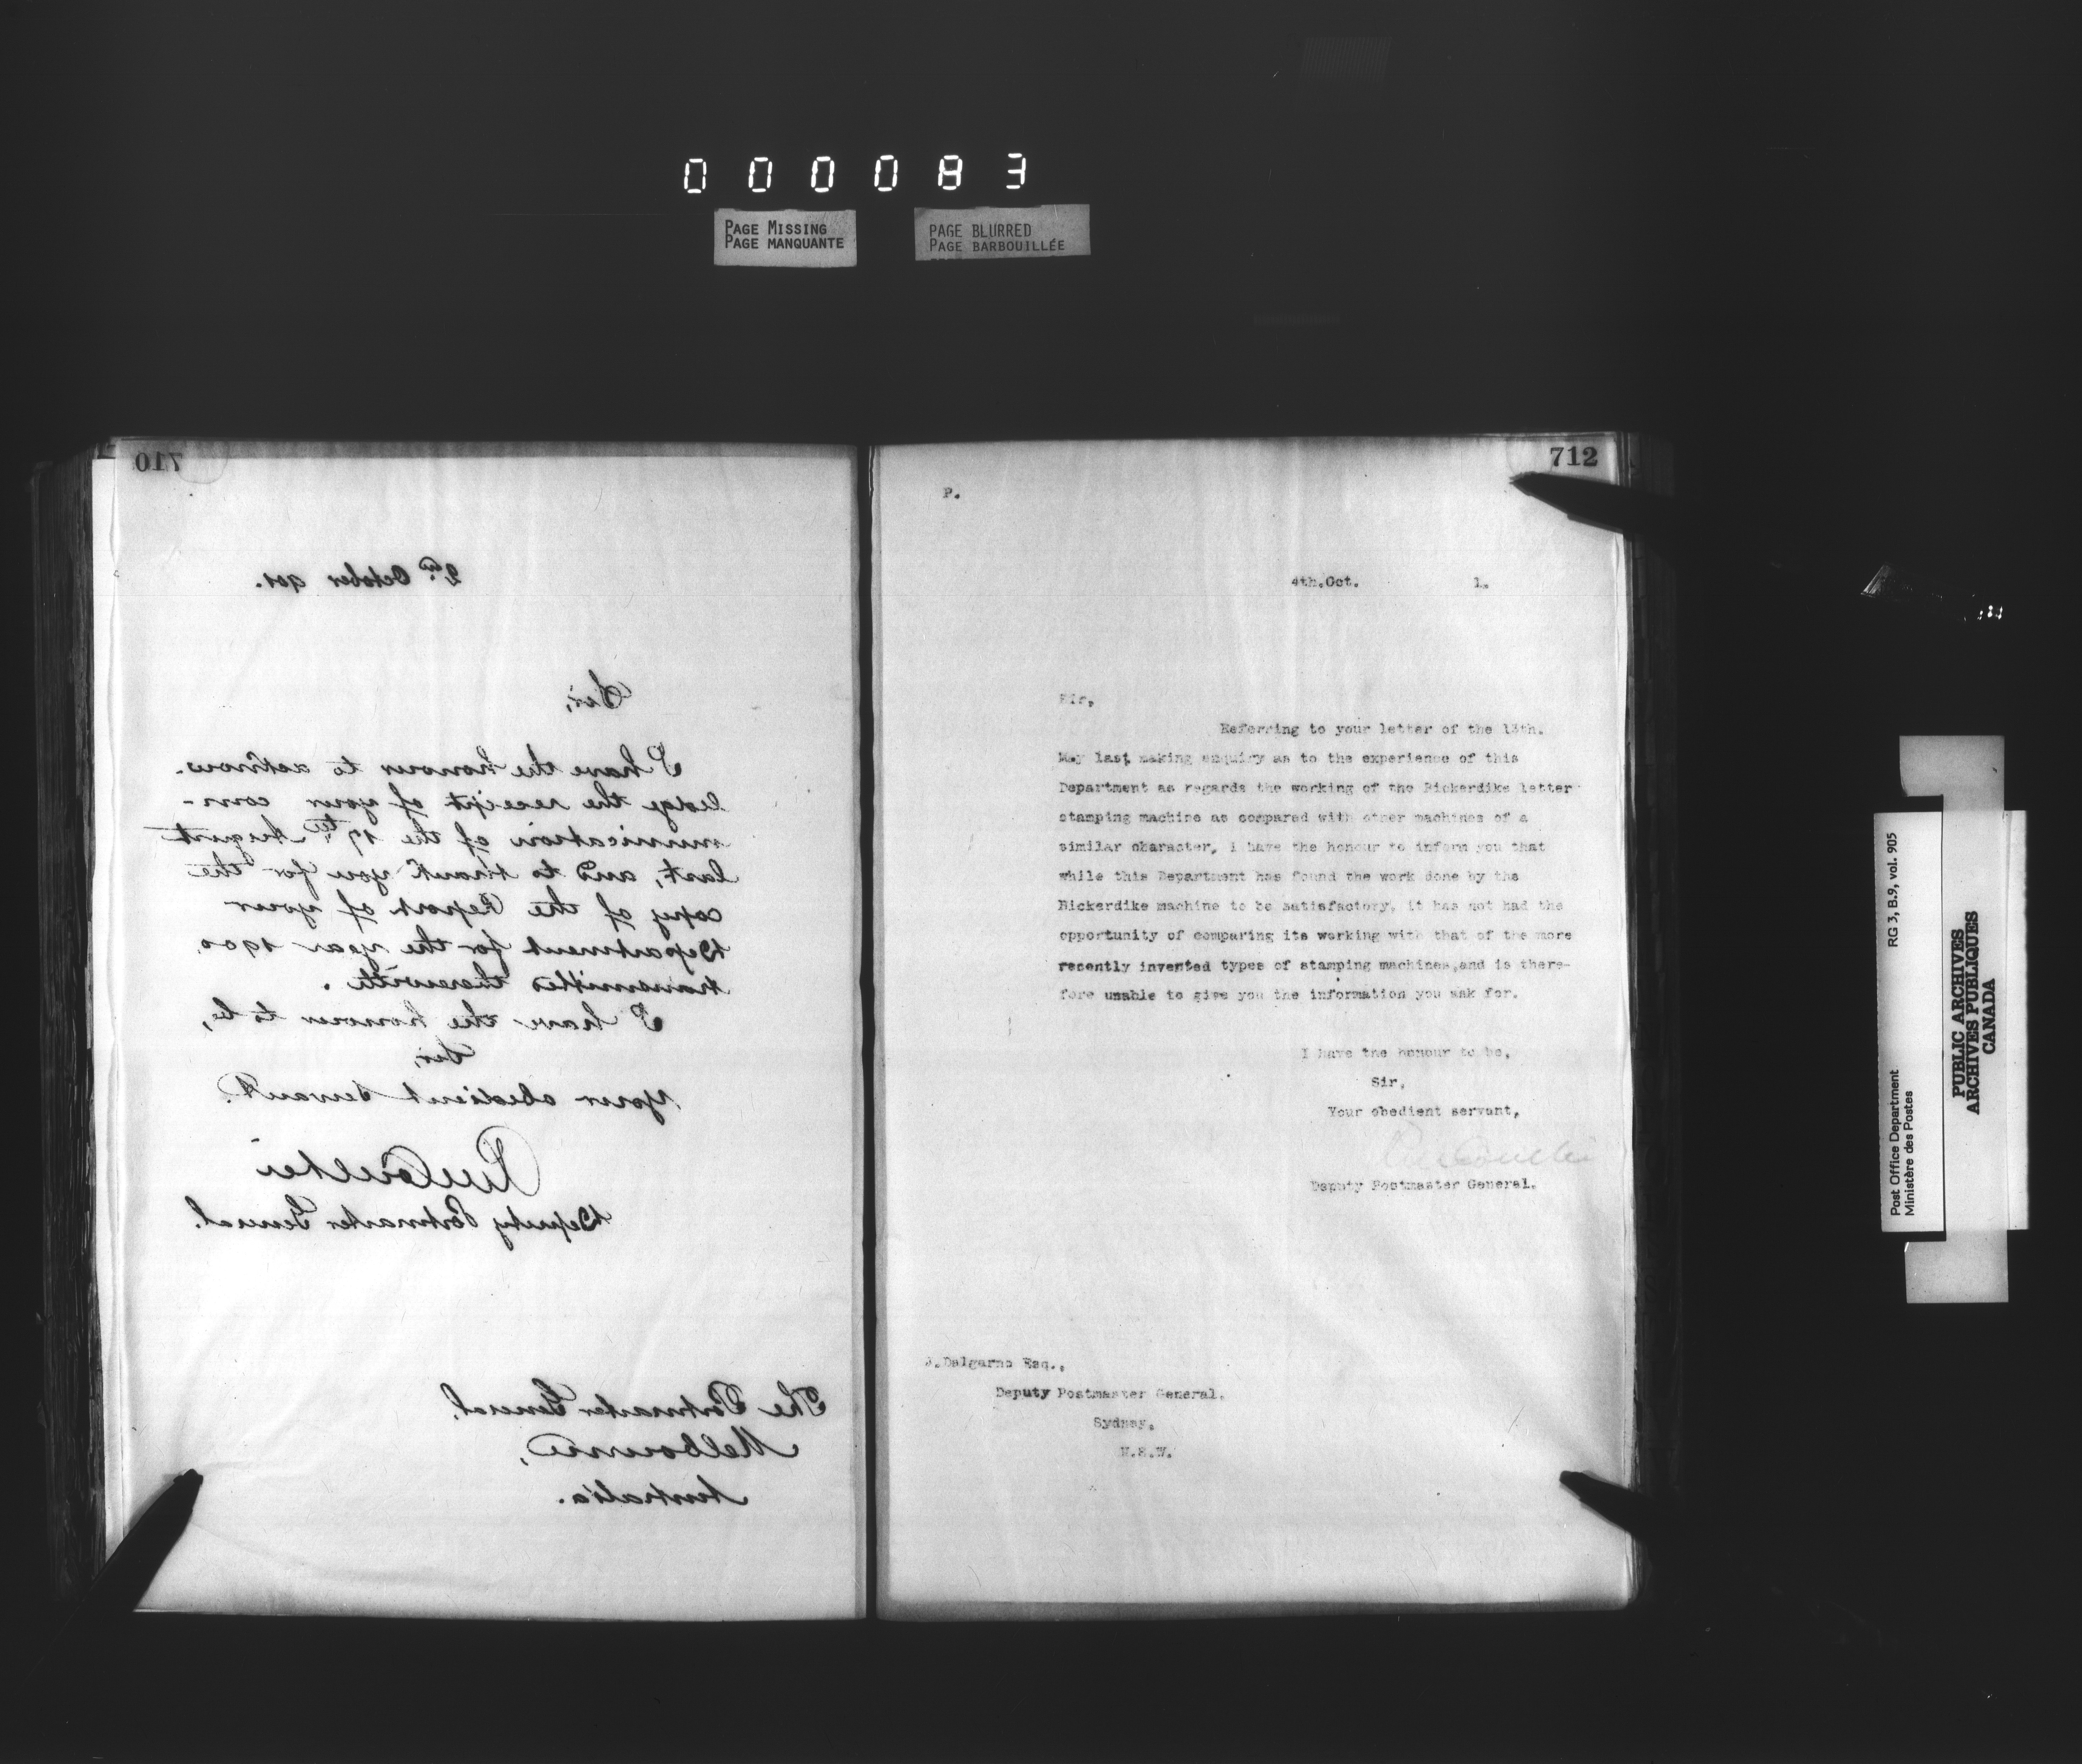 0 0 0 0 8 3
PAGE MISSING
PAGE MANQUANTE
PAGE BLURRED
PAGE BARBOUILLÉE
710
2nd October 901.
Sir,
I have the honour to acknow-
ledge the receipt of your com-
munication of the 17th August
last, and to thank you for the
copy of the Report of your
Department for the year 1900
transmitted therewith.
I have the honour to be,
Sir,
Your obedient servant.
RMCoulter
Deputy Postmaster General.
The Postmaster General,
Melbourne,
Australia.
712
P.
4th.Oct. 1.
Sir,
Referring to your letter of the 13th.
May last making enquiry as to the experience of this
Department as regards the working of the Bickerdike letter
stamping machine as compared with other machines of a
similar character, I have the honour to inform you that
while this Department has found the work done by the
Bickerdike machine to be satisfactory, it has not had the
opportunity of comparing its working with that of the more
recently invented types of stamping machines,and is there-
fore unable to give you the information you ask for.
I have the honour to be,
Sir,
Your obedient servant,
RMCoulter
Deputy Postmaster General.
Dalgarno Esq.,
Deputy Postmaster General.
Sydney.
N.S.W.
RG 3, B.9, vol. 905
Post Office Department
Ministère des Postes
PUBLIC ARCHIVES
ARCHIVES PUBLIQUES
CANADA